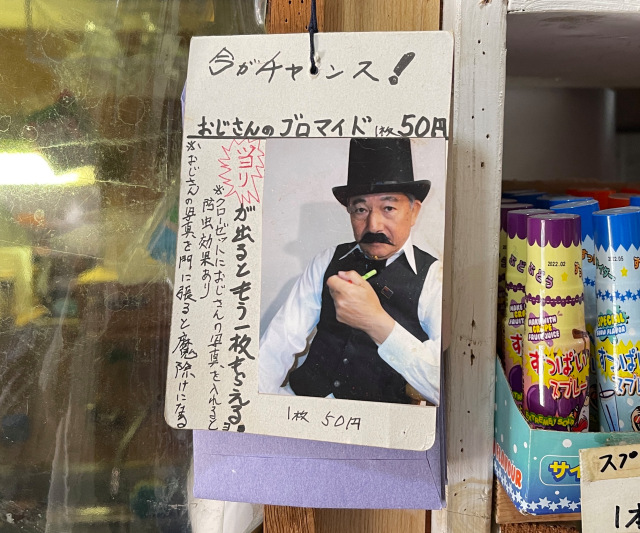 今がチャンス!
おじさんのブロマイド 1枚 50円
ヅヨリ
が出るともう一枚もらえるョ
※クローゼットにおじさんの写真を入れると
防虫効果あり
※おじさんの写真を門に張ると魔除けになる
1枚 50円
2022.02
ぶどう
MADE WITH
GRAPE
FRUIT JUICE
すっぱい
スプレー
2022.05
スプレー
サイ
スプ
1本